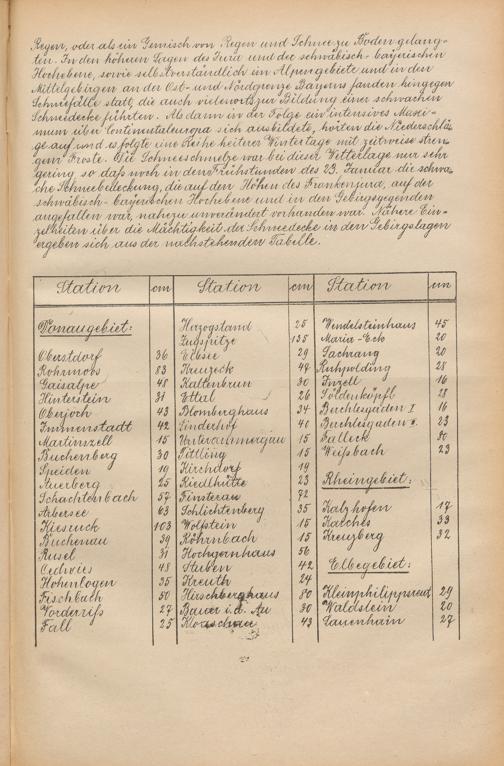 Regen, oder als ein Gemisch von Regen und Schnee zu Boden gelang-
ten. In den höheren Lagen des Jura und der schwäbisch-bayerischen
Hochebene, sowie selbstverständlich im Alpengebiete und in den
Mittelgebirgen an der Ost- und Nordgrenze Bayerns fanden hingegen
Schneefälle statt, die auch vielenorts zur Bildung einer schwachen
Schneedecke führten. Als dann in der Folge ein intensives Maxi-
mum über Continentaleuropa sich ausbildete, hörten die Niederschlä-
ge auf und es folgte eine Reihe heiterer Wintertage mit zeitweise stren-
gem Froste. Die Schneeschmelze war bei dieser Witterlage nur sehr
gering, so daß noch in den Frühstunden des 23. Januar die schwa-
che Schneebedeckung, die auf den Höhen des Frankenjura, auf der
schwäbisch-bayerischen Hochebene und in den Gebirgsgegenden
angefallen war, nahezu unverändert vorhanden war. Nähere Ein-
zelheiten über die Mächtigkeit der Schneedecke in den Gebirgslagen
ergeben sich aus der nachstehenden Tabelle.
Station cm Station cm Station cm
Donaugebiet:
Oberstdorf 36
Rohrmoos 83
Gaisalpe 48
Hinterstein 31
Oberjoch 43
Immenstadt 42
Martinzell 15
Buchenberg 30
Speiden 19
Auerberg 25
Schachtenbach 57
Arbersee 63
Kiesruck 103
Buchenau 39
Rusel 31
48
Hohenlogen 35
Fischbach 50
Vorderriß 27
Fall 25
Herzogstand 25
Zugspitze 135
Eibsee 29
Kreuzeck 44
Kaltenbrun 30
Ettal 26
Blomberghaus 34
Linderhof 40
Unterammergau 15
Tittling 15
Kirchdorf 19
Riedlhütte 23
Finsterau 72
Schlichtenberg 35
Wolfstein 15
Röhrnbach 15
Hochgernhaus 56
Steben 42
Kreuth 24
Hirschberghaus 80
Bauer i.d. Au 30
43
Wendelsteinhaus 45
Maria-Eck 20
Sachrang 20
Ruhpolding 28
Inzell 16
Söldenköpfl 28
Berchtesgaden I 16
Berchtesgaden II. 23
Falleck 80
Weißbach 23
Rheingebiet:
Kalzhofen 17
Kalches 33
Kreuzberg 32
Elbegebiet:
Kleinphilippsreut 29
Waldstein 20
Lauenhain 27